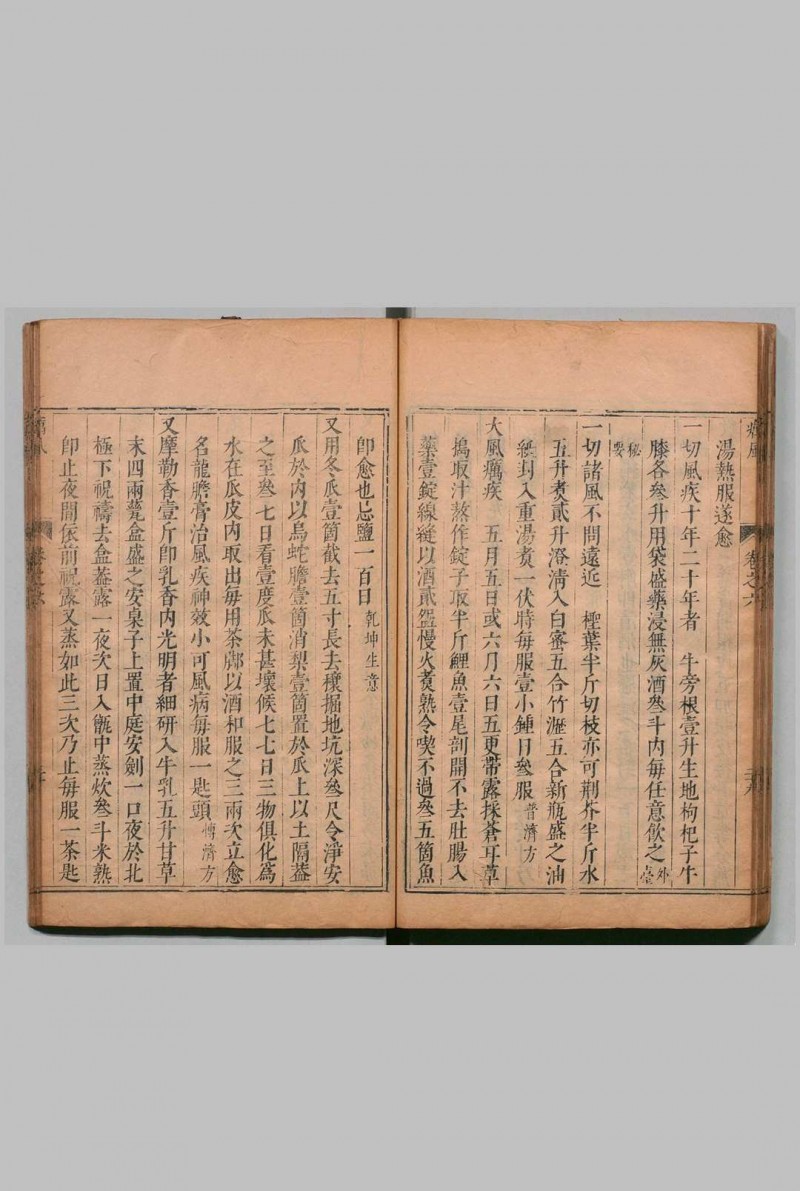 湯熱服遂愈
一切風疾十年二十年者　牛旁根壹升生地枸杞子牛
膝各叁升用袋盛藥浸無灰酒叁斗內每任意飲之外臺
秘要
一切諸風不問遠近　檉葉半斤切枝亦可荆芥半斤水
五升煑貳升澄清入白蜜五合竹瀝五合新瓶盛之油
紙封入重湯煑一伏時每服壹小鍾日叁服普濟方
大風癘疾　五月五日或六月六日五更帶露採蒼耳草
搗取汁蒸作錠子取半斤鯉魚壹尾剖開不去肚腸入
藥壹錠線縫以酒貳盌慢火煑熟令喫不過叁五箇魚
卽愈也忌鹽一百日乾坤生意
又用冬瓜壹箇截去五寸長去穰掘地坑深叁尺令淨安
瓜於內以烏蛇膽壹箇消梨壹箇置於瓜上以土隔葢
之至叁七日看壹度瓜未甚壞候七七日三物俱化爲
水在瓜皮內取出每用茶脚以酒和服之三兩次立愈
名龍膽膏治風疾神效小可風病每服一匙頭博濟方
又摩勒香壹斤卽乳香內光明者細研入牛乳五升甘草
末四兩甆盒盛之安桌子上置中庭安劍一口夜於北
極下祝禱去盒葢露一夜次日入甑中蒸炊叁斗米熟
卽止夜間依前祝露又蒸如此三次乃止每服一茶匙
卷之六